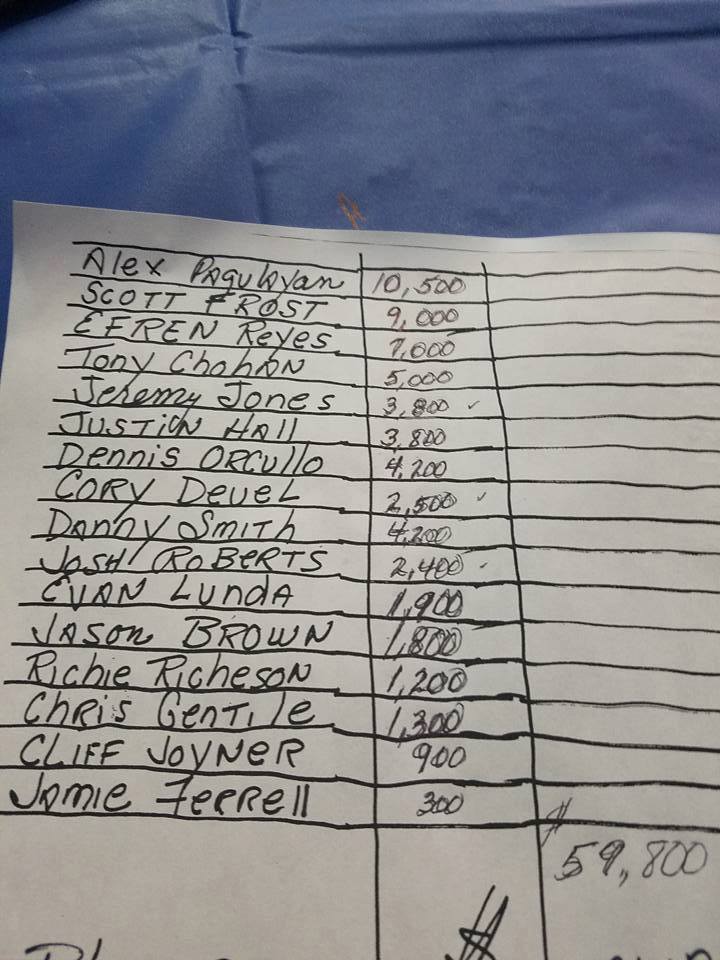 Alex Pagulayan 10,500
SCOTT FROST 9,000
EFREN Reyes 7,000
Tony Chohan 5,000
Jeremy Jones 3,800
JUSTIN HAll 3,800
Dennis ORCUllo 4,200
CORY DeueL 2,500
Danny SmiTh 4,200
JOSH ROBERTS 2,400
EVAN LundA 1,900
JASon BROWN 1,800
Richie RicHesoN 1,200
CHRis GenTile 1,300
CLIFF JOYNeR 900
JAmie FeRRell 300
$
59,800
$